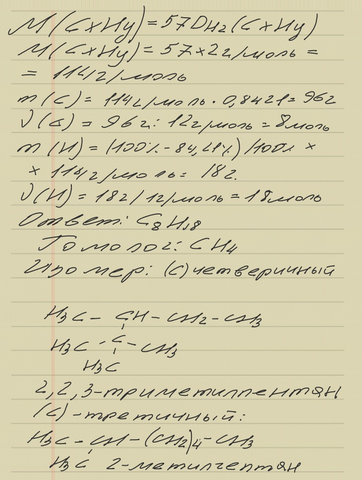 M(CxHy) = 57DH2(CxHy)
M(CxHy) = 57×2г/моль =
= 114г/моль
m(C) = 114г/моль · 0,8421 = 96г
ν(C) = 96г : 12г/моль = 8моль
m(H) = (100% - 84,21%)/100% ×
× 114г/моль = 18г.
ν(H) = 18г/1г/моль = 18моль
Ответ: C8H18
Гомолог: CH4
Изомер: (C) четверичный
H3C - CH - CH2 - CH3
H3C - C - CH3
H3C
2,2,3-триметилпентан
(C) - третичный:
H3C - CH - (CH2)4 - CH3
H3C 2-метилгептан